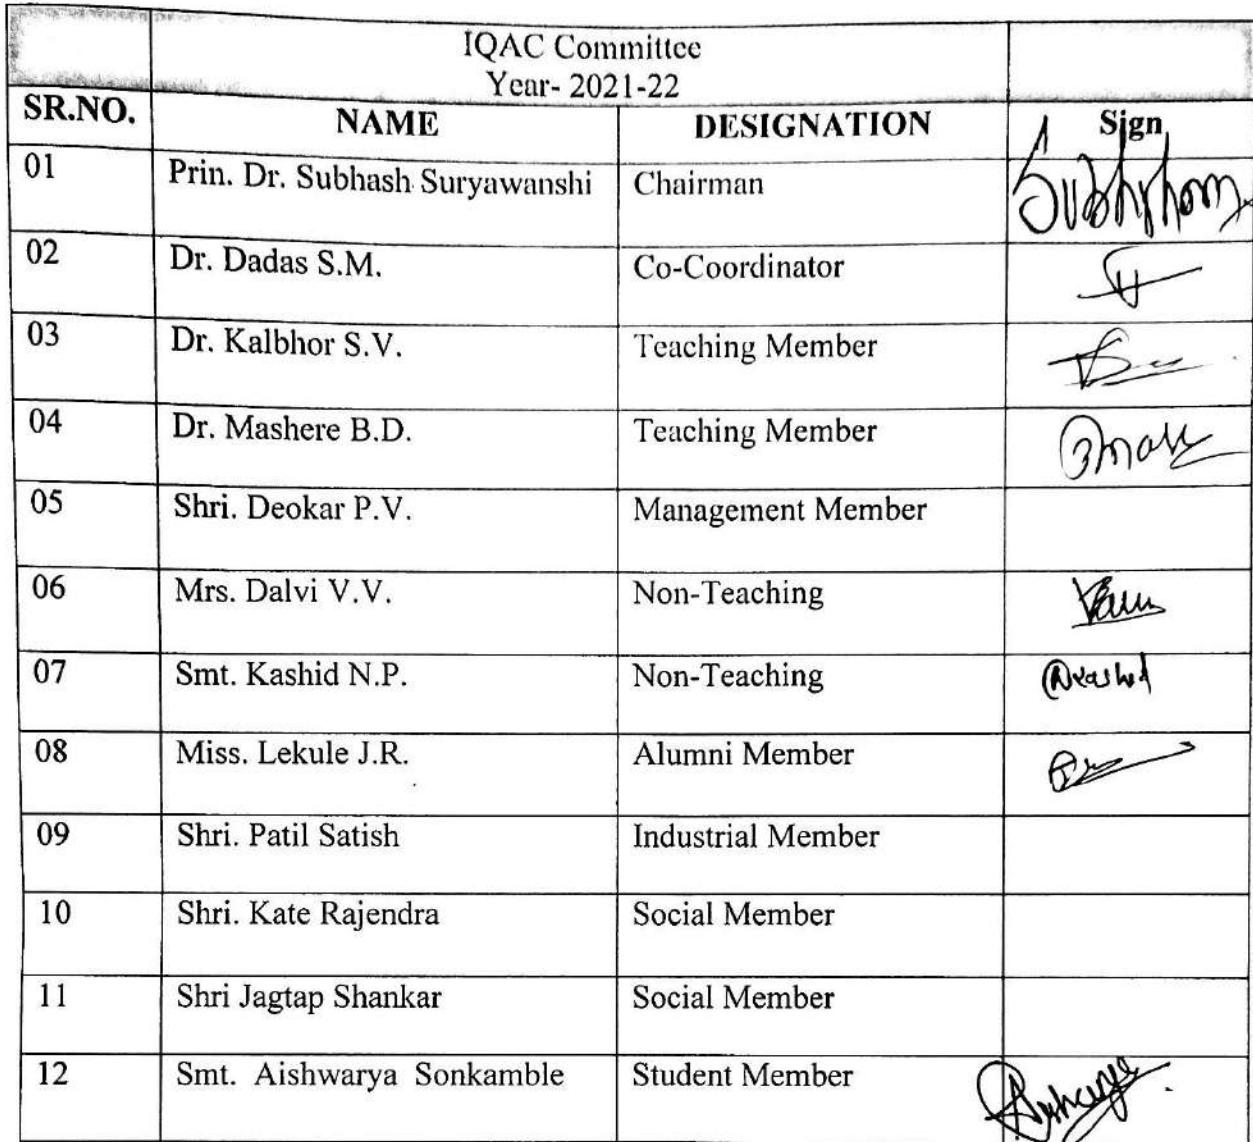 IQAC Committee
Year- 2021-22
SR.NO. NAME DESIGNATION Sign
01 Prin. Dr. Subhash Suryawanshi Chairman
02 Dr. Dadas S.M. Co-Coordinator
03 Dr. Kalbhor S.V. Teaching Member
04 Dr. Mashere B.D. Teaching Member
05 Shri. Deokar P.V. Management Member
06 Mrs. Dalvi V.V. Non-Teaching
07 Smt. Kashid N.P. Non-Teaching
08 Miss. Lekule J.R. Alumni Member
09 Shri. Patil Satish Industrial Member
10 Shri. Kate Rajendra Social Member
11 Shri Jagtap Shankar Social Member
12 Smt. Aishwarya Sonkamble Student Member